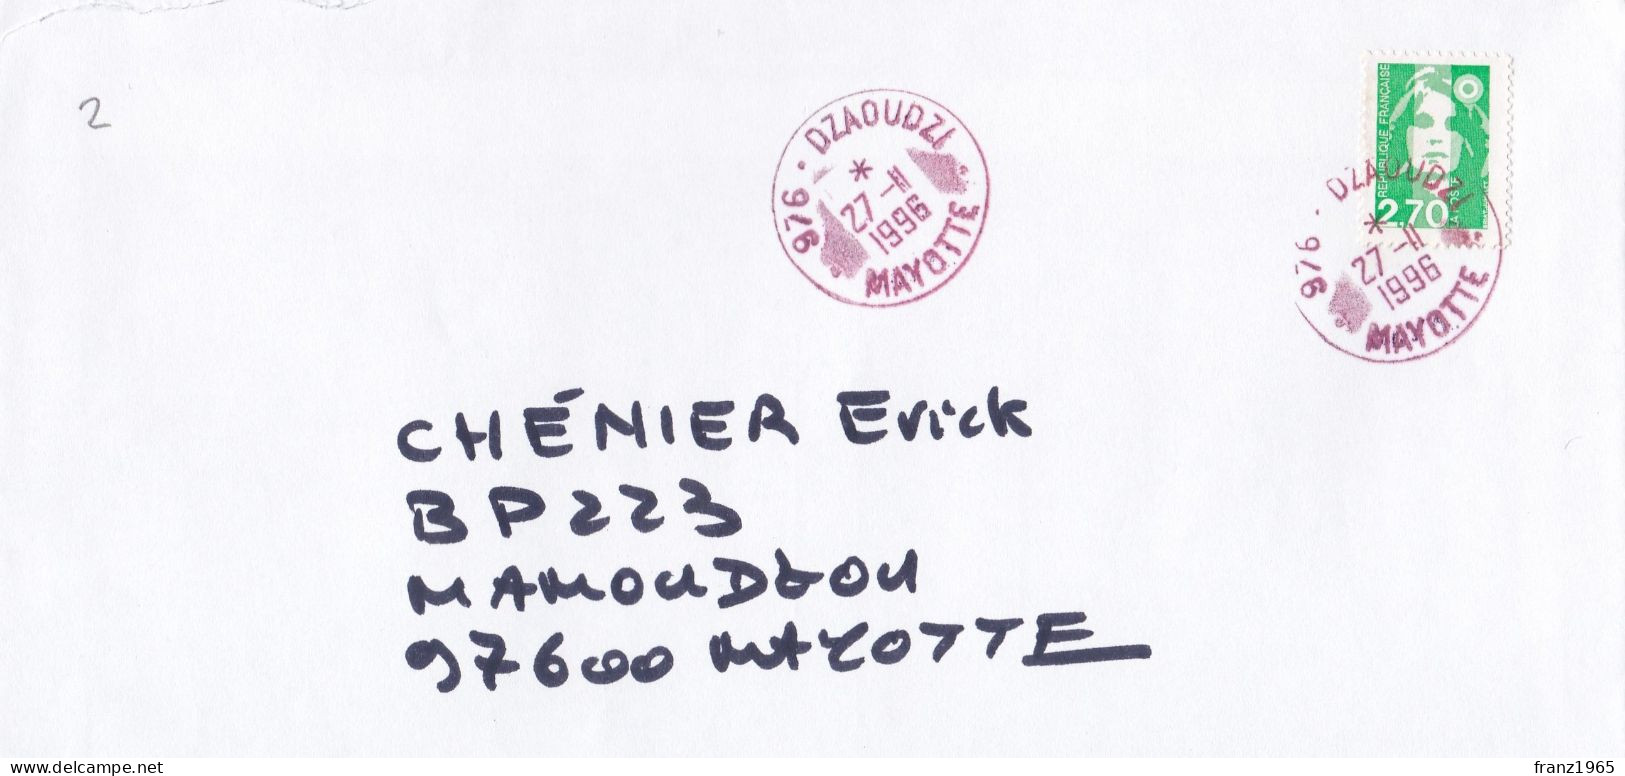 2
DZAOUDZI
*
27-11
1996
976
MAYOTTE
REPUBLIQUE FRANÇAISE
2,70
LA POSTE
DZAOUDZI
*
27-11
1996
976
MAYOTTE
CHÉNIER Erick
BP 223
MAMOUDZOU
97600 MAYOTTE
delcampe.net
franz1965